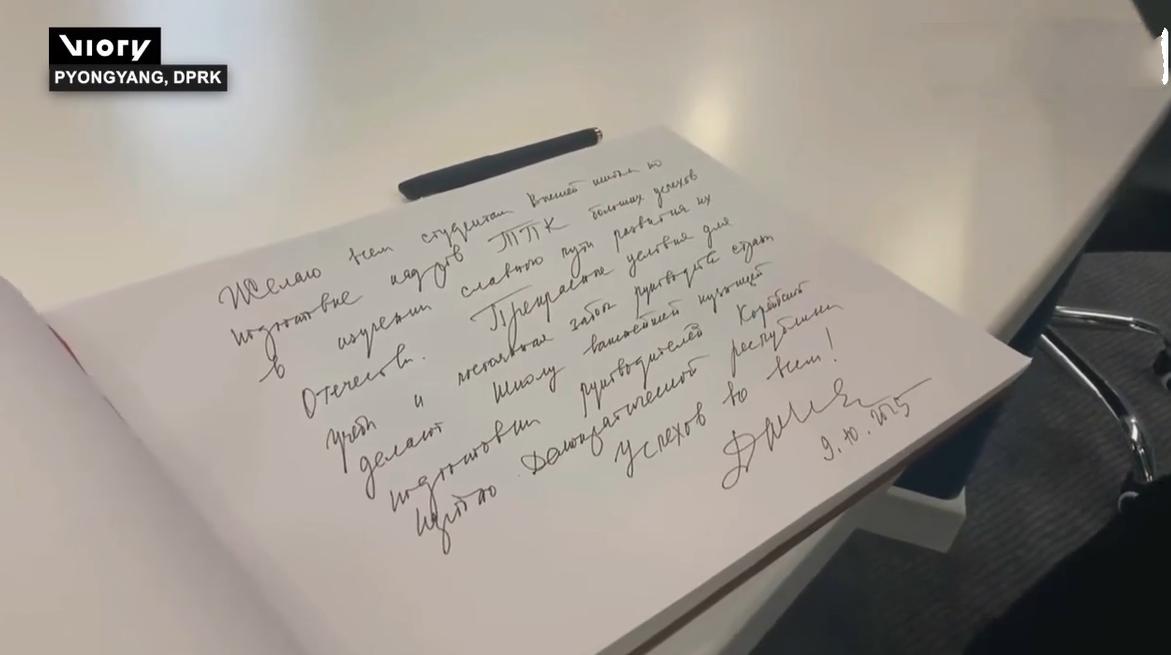 VIORY
PYONGYANG, DPRK
Желаю всем студентам Высшей школы по
подготовке кадров ТПК больших успехов
в изучении славного пути развития их
Отечества. Прекрасные условия для
учебы и постоянная забота руководства страны
делают Школу важнейшей кузницей
подготовки руководителей Корейской
Народно Демократической республики
Успехов во всем!
9.10.2025